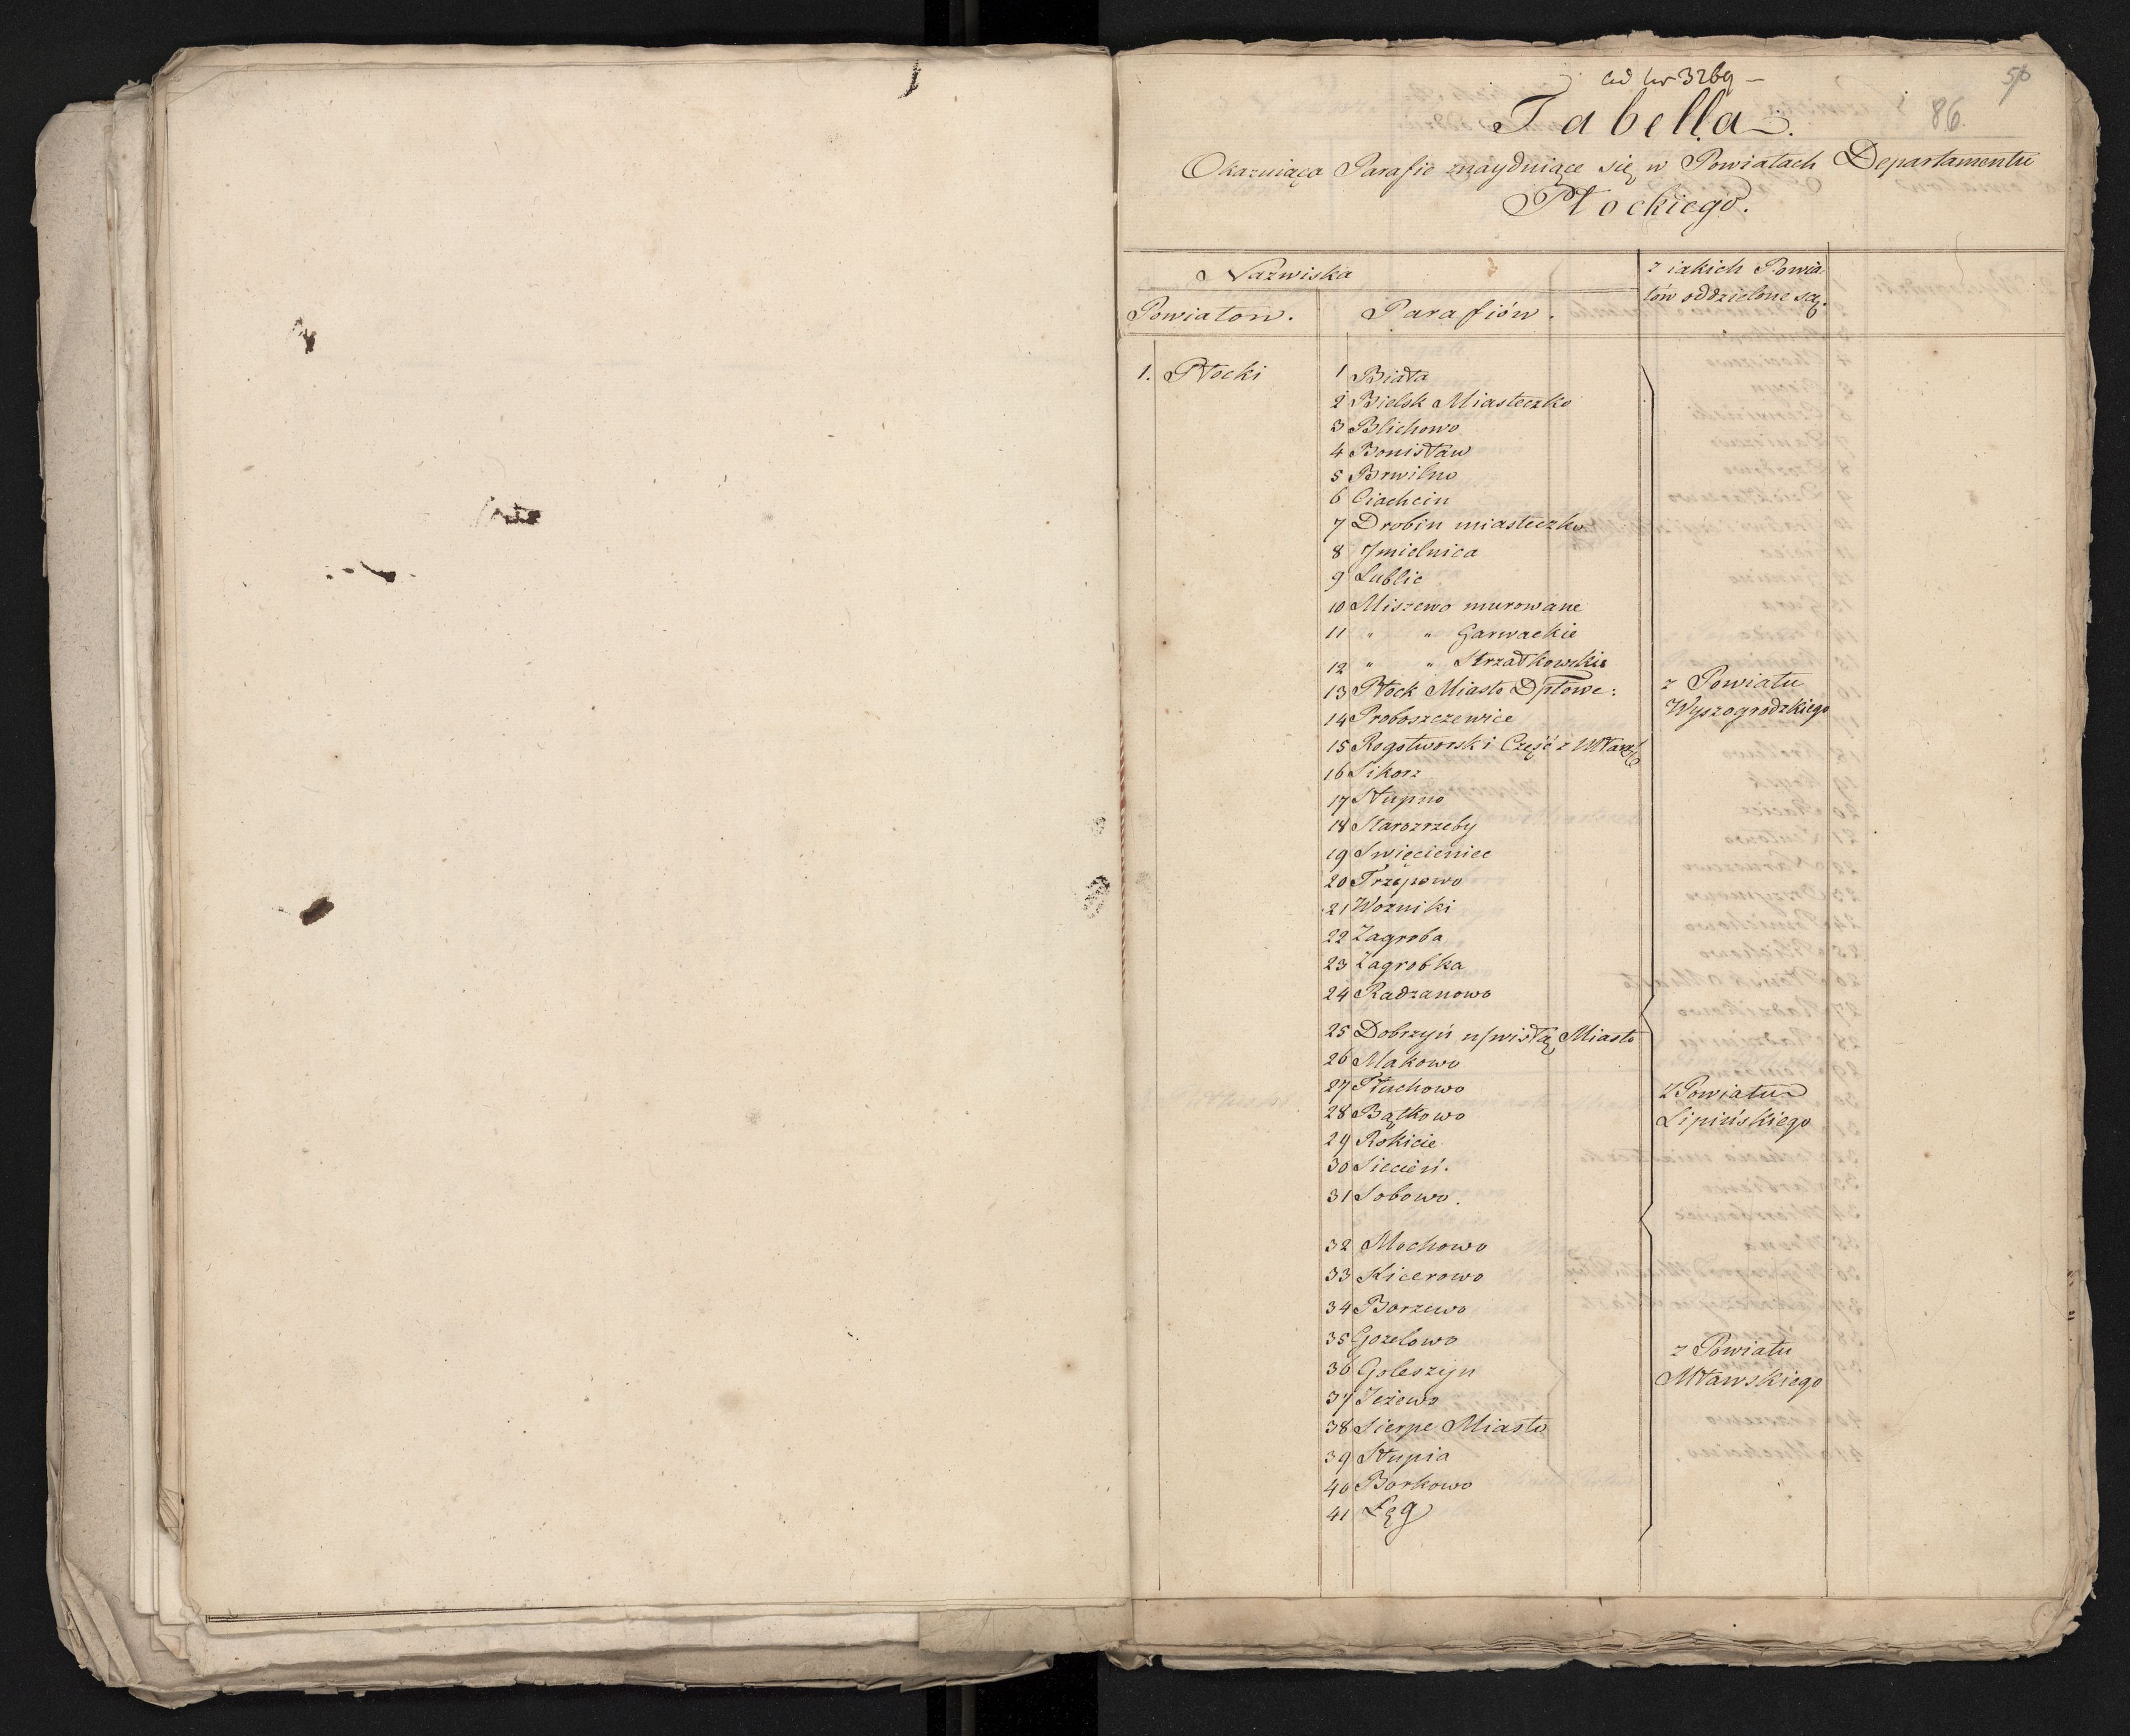 ad Nr 3269 —
56
86.
Tabella.
Okazuiąca Parafie znayduiące się w Powiatach Departamentu
Płockiego.
Nazwiska
z iakich Powia-
tów oddzielone są.
Powiatow.
Parafiów.
1. Płocki
1 Biała
2 Bielsk Miasteczko
3 Blichowo
4 Bonisław
5 Brwilno
6 Ciachcin
7 Drobin miasteczko
8 Jmielnica
9 Lublic
10 Miszewo murowane
11 " " Garwackie
12 " " Strzałkowskie
13 Płock Miasto Dptowe:
z Powiatu
Wyszogrodzkiego
14 Proboszczewice
15 Rogotworski Część z
16 Sikorz
17 Słupno
18 Starozrzeby
19 Swięcieniec
20 Trzepowo
21 Wozniki
22 Zagroba
23 Zagrobka
24 Radzanowo
25 Dobrzyń n/wisłą Miasto
26 Makowo
27 Tłuchowo
z Powiatu
28 Bątkowo
Lipińskiego
29 Rokicie
30 Siecień.
31 Sobowo.
32 Mochowo
33 Kicerowo
34 Borzewo
35 Gozelowo
z Powiatu
36 Goleszyn
Mławskiego
37 Jeżewo
38 Sierpc Miasto
39 Słupia
40 Borkowo
41 Łęg